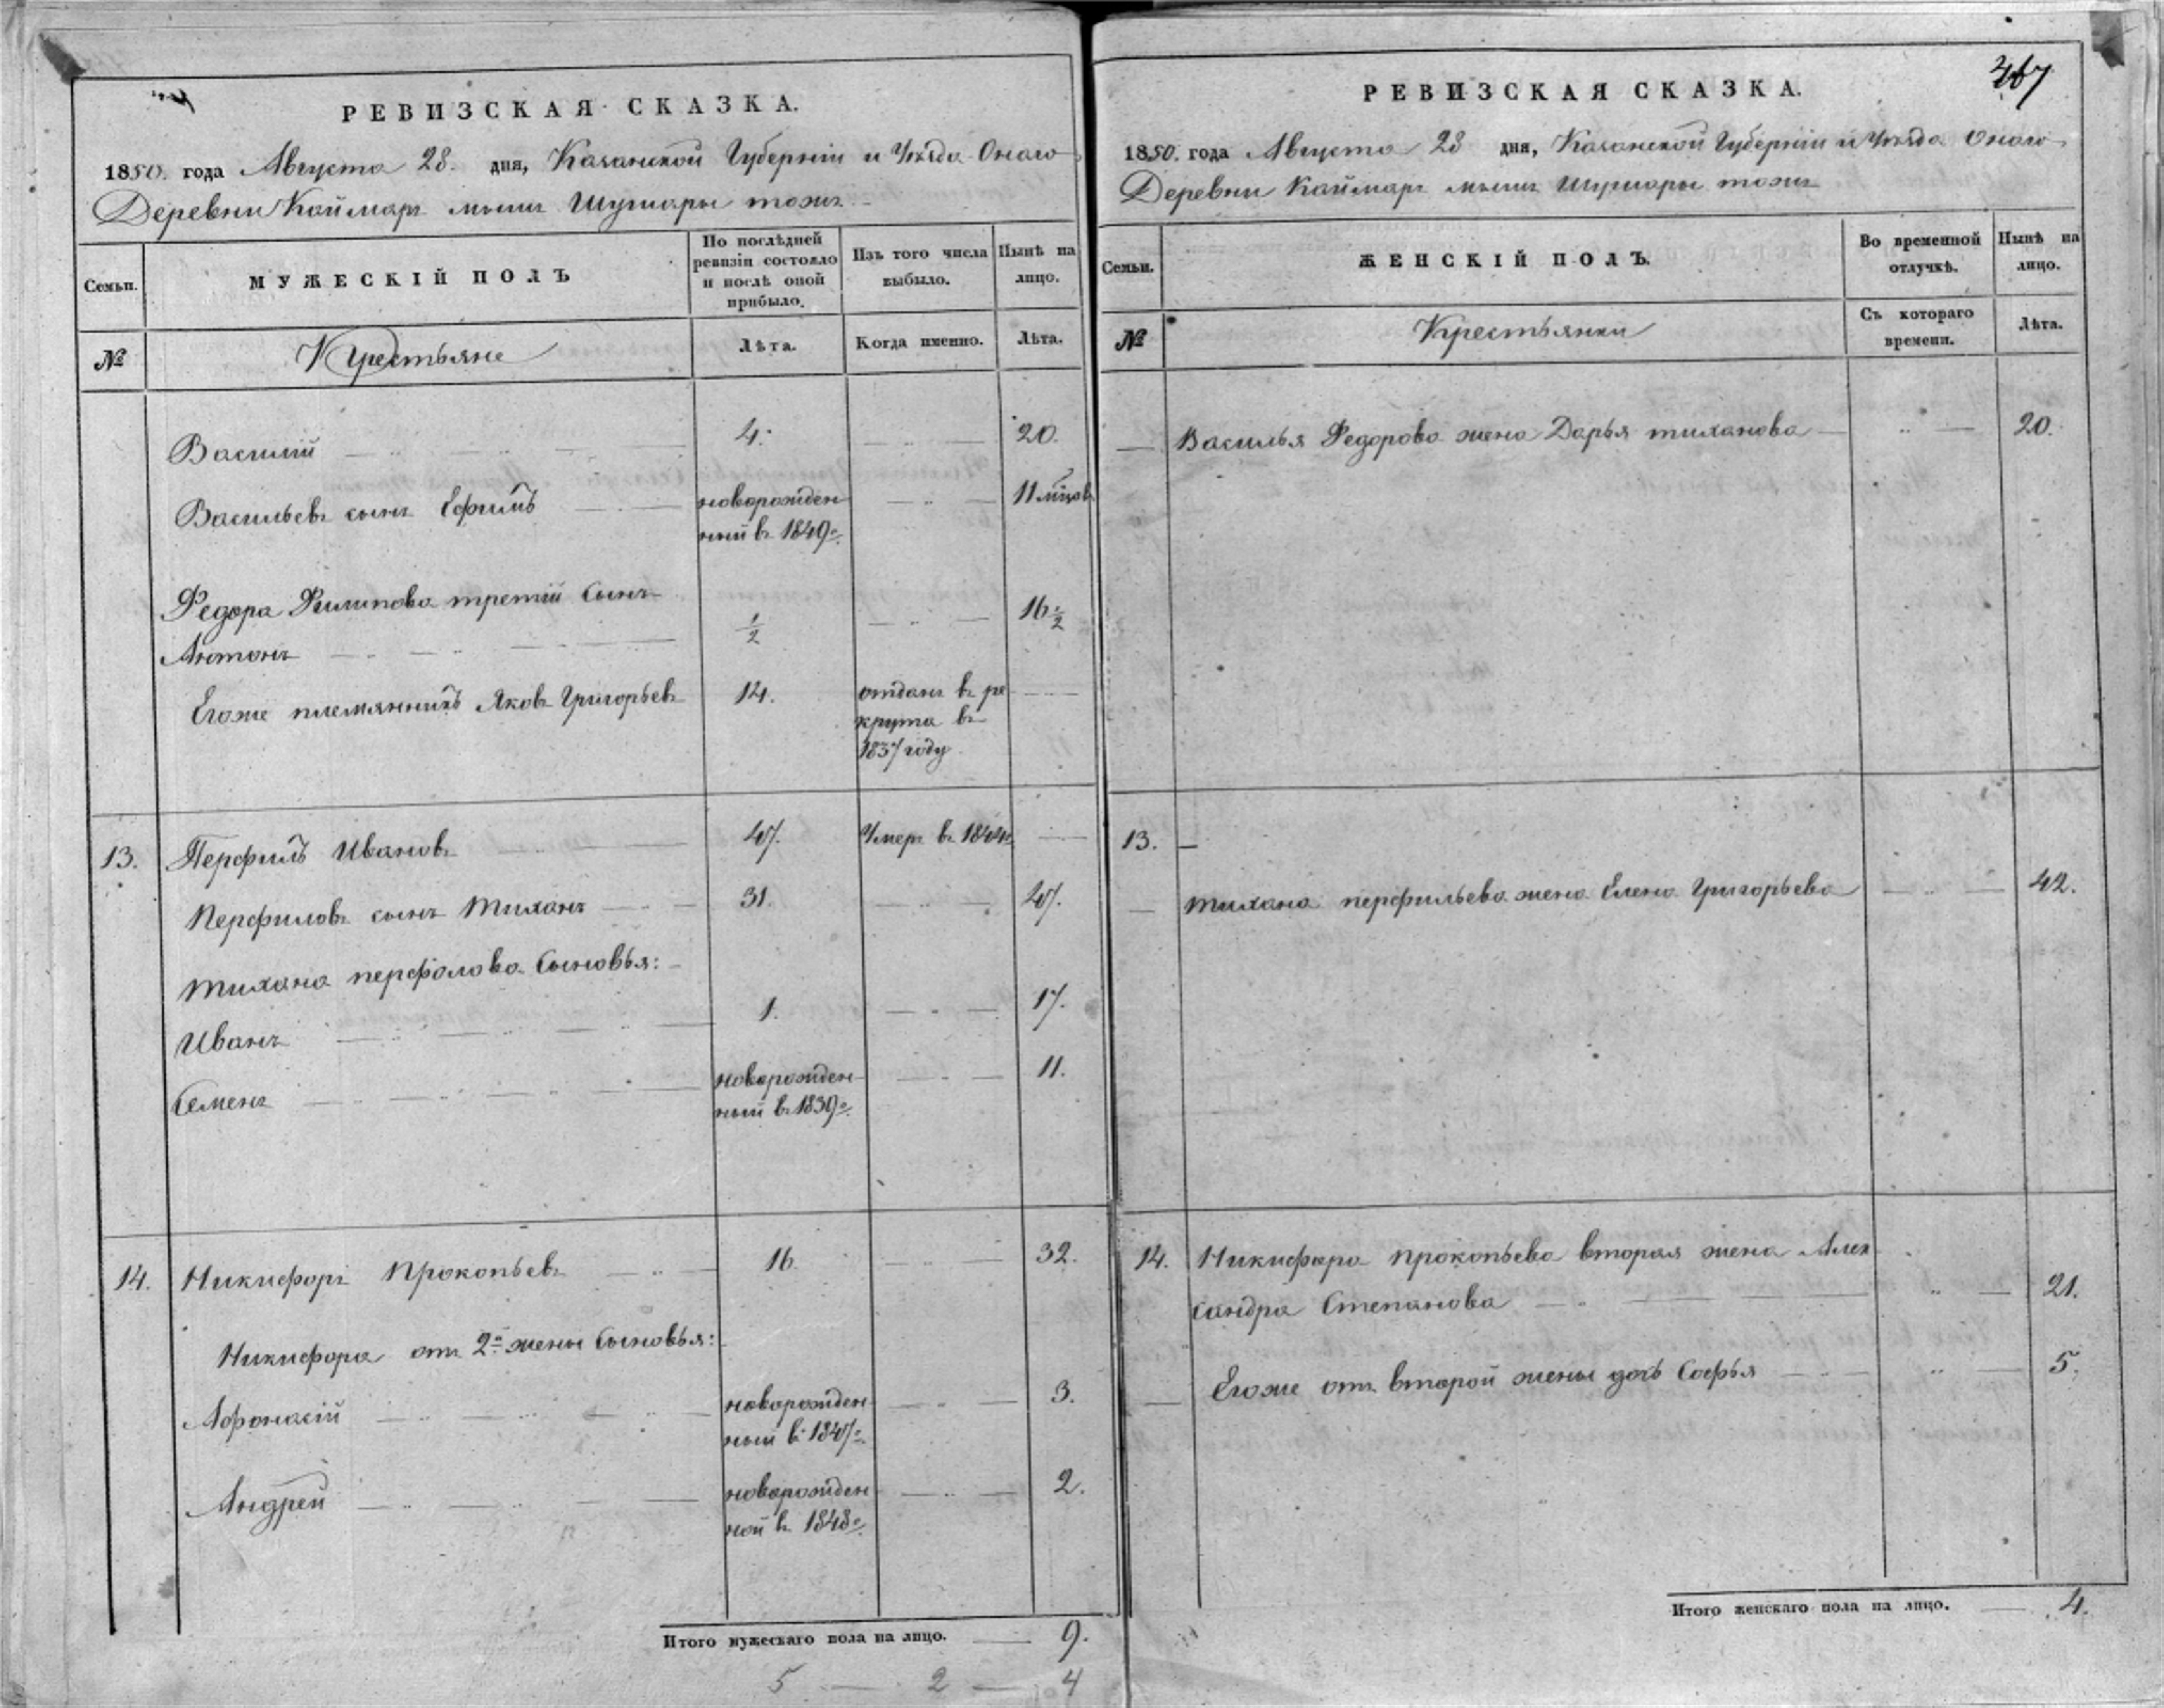 РЕВИЗСКАЯ СКАЗКА.
1850. года Августа 28. дня, Казанской Губернiи и Уѣзда Онаго
Деревни Каймаръ мышъ Шушары тожъ
Семьи.
МУЖЕСКIЙ ПОЛЪ
По послѣдней
ревизiи состояло
и послѣ оной
прибыло.
Изъ того числа
выбыло.
Нынѣ на
лицо.
№
Крестьяне
Лѣта.
Когда именно.
Лѣта.
Василiй 4. 20.
Васильевъ сынъ Ефимъ новорожден 11 мѣцовъ
ный въ 1849
Федора Филипова третiй сынъ
Антонъ 1/2 16 1/2
Егоже племянникъ Яковъ Григорьевъ 14. отданъ въ ре
крута въ
1837 году
13. Перфилъ Ивановъ 47. Умеръ въ 1844
Перфиловъ сынъ Тиханъ 31. 47.
Тихана перфолова сыновья:
Иванъ 1. 17.
Семенъ новорожден 11.
ный в 1839
14. Никифоръ Прокопьевъ 16 32.
Никифора отъ 2й жены сыновья:
Афонасiй новорожден 3.
ный в 1847
Андрей новорожден 2.
ной в 1848
Итого мужескаго пола на лицо. 9.
5 — 2 — 4
467
РЕВИЗСКАЯ СКАЗКА.
1850. года Августа 28 дня, Казанской Губернiи и Уѣзда Онаго
Деревни Каймаръ мышъ Шушары тожъ
Семьи.
ЖЕНСКIЙ ПОЛЪ.
Во временной
отлучкѣ.
Нынѣ на
лицо.
№
Крестьянки
Съ котораго
времени.
Лѣта.
Василья Федорова жена Дарья тиханова 20.
13. —
Тихана перфильева жена Елена Григорьева 42.
14. Никифара прокопьева вторая жена Алек
сандра Степанова 21.
Егоже отъ второй жены дочь Софья 5.
Итого женскаго пола на лицо. 4.